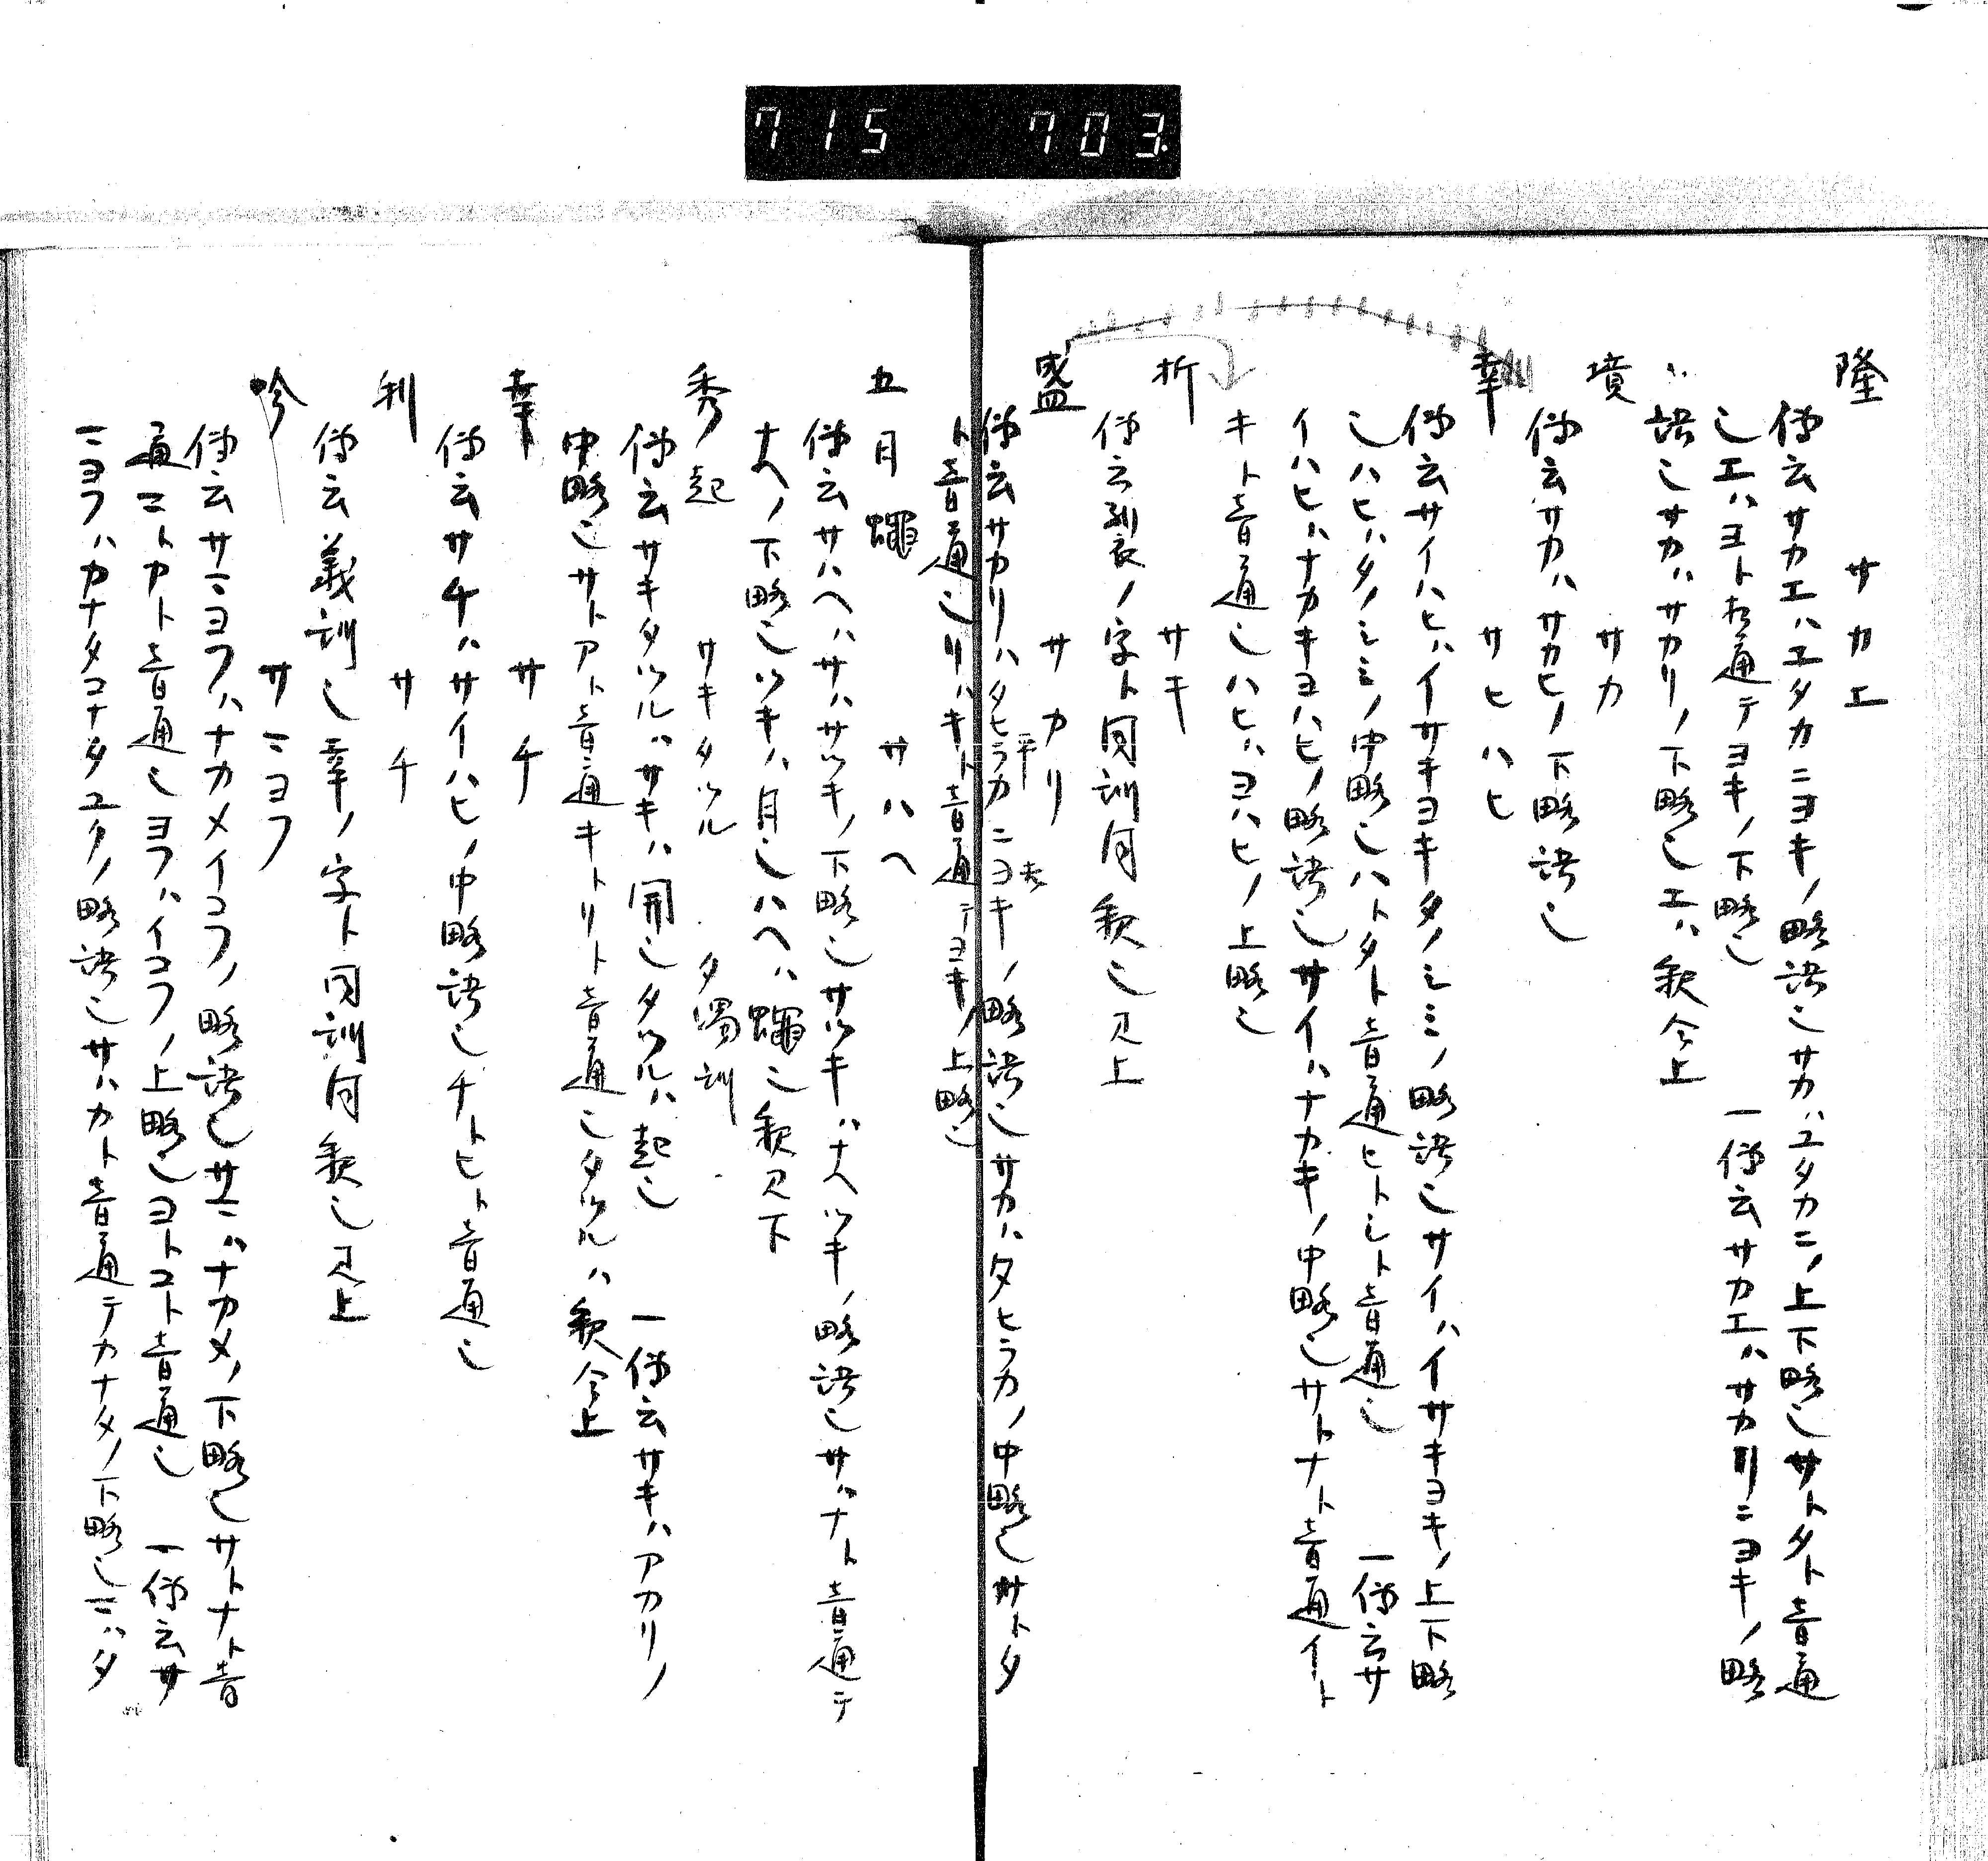 715 703
隆 サカエ
傳云サカエハエタカニヨキノ略語也サカハユタカニノ上下略也サトタト音通
也エハヨト相通テヨキノ下略也 一傳云サカエハサカリニヨキノ略
語也サカハサカリノ下略也エハ釈同上
墳 サカ
傳云サカハサカヒノ下略語也
幸 サヒハヒ
傳云サイハヒハイサキヨキタノシミノ略語也サイハイサキヨキノ上下略
也ハヒハタノシミノ中略也ハトタト音通ヒトシト音通也 一傳云サ
イハヒハナカキヨハヒノ略語也サイハナカキノ中略也サトナト音通イト
キト音通也ハヒハヨハヒノ上略也
折 サキ
傳云裂ノ字ト同訓同釈也見上
盛 サカリ
傳云サカリハタヒラカニヨキノ略語也サカハタヒラカノ中略也サトタ
ト音通也リハキト音通テヨキノ上略也
五月蠅 サハヘ
傳云サハヘハサハサツキノ下略也サツキハナヘツキノ略語也サハナト音通テ
ナヘノ下略也ツキハ月也ハヘハ蠅也釈見下
秀起 サキタツル タ濁訓
傳云サキタツルハサキハ開也タツルハ起也 一傳云サキハアカリノ
中略也サトアト音通キトリト音通也タツルハ釈同上
幸 サチ
傳云サチハサイハヒノ中略語也チトヒト音通也
利 サチ
傳云義訓也幸ノ字ト同訓同釈也見上
吟 サニヨフ
傳云サニヨフハナカメイコフノ略語也サニハナカメノ下略也サトナト音
通ニトカト音通也ヨフハイコフノ上略也ヨトコト音通也 一傳云サ
ニヨフハカナタコナタユクノ略語也サハカト音通テカナタノ下略也ニハタ